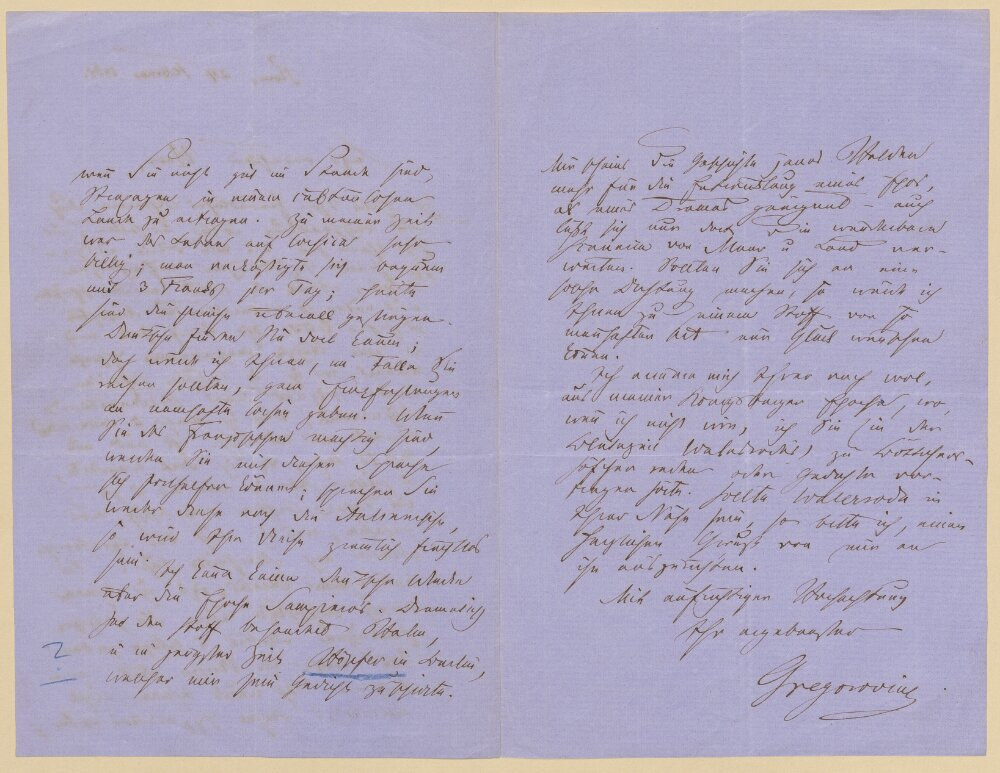 wenn Sie nicht gut im Stande sind,
Strapazen in einem culturlosen
Lande zu ertragen. Zu meiner Zeit
war das Leben auf Corsica sehr
billig; man verköstigte sich bequem
mit 3 Francs per Tag; heute
sind die Preise überall gestiegen.
Deutsche finden Sie dort kaum;
doch werde ich Ihnen, im Falle Sie
reisen sollten, gern Empfehlungen
an namhafte Corsen geben. Wenn
Sie des Französischen mächtig sind,
werden Sie mit dieser Sprache
sich forthelfen können; sprechen Sie
weder diese noch die Italienische,
so wird Ihre Reise ziemlich fruchtlos
sein. Ich kenne keine deutschen Werke
über die Epoche Sampieros. Dramatisch
hat den Stoff behandelt
u in jüngster Zeit Wöpfer in Berlin,
welcher mir sein Gedicht zuschickte.
Mir scheint die Geschichte jenes Helden
mehr für die Entwicklung eines Epos,
als eines Dramas geeignet – auch
läßt sich nur dort die wunderbare
Scenerie von Meer u Land ver-
werten. Sollten Sie sich an eine
solche Dichtung machen, so würde ich
Ihnen zu einem Stoff von so
mannhafter Art nur Glück wünschen
können.
Ich erinnere mich Ihrer noch wol,
aus meiner Königsberger Epoche, wo,
wenn ich nicht irre, ich Sie (in der
Walesrodes) zu
reden oder Gedichte vor-
tragen hörte. Sollte Walesrode in
Ihrer Nähe sein, so bitte ich einen
herzlichen Gruß von mir an
ihn auszurichten.
Mit aufrichtiger Hochachtung
Ihr ergebenster
Gregorovius